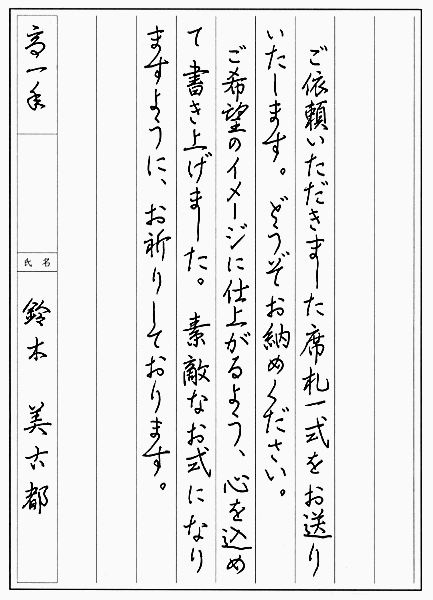 ご依頼いただきました席札一式をお送り
いたします。どうぞお納めください。
ご希望のイメージに仕上がるよう、心を込め
て書き上げました。素敵なお式になり
ますように、お祈りしております。
氏名
鈴木 美古都